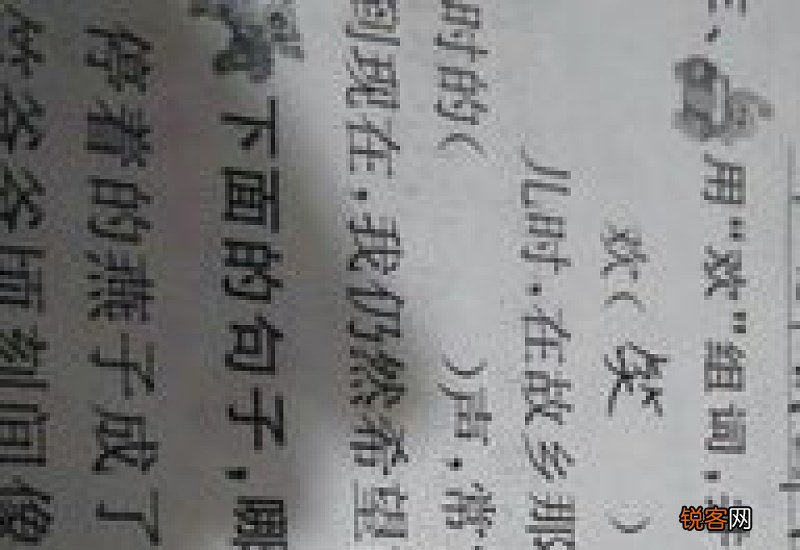 、用“欢”组词，
欢（ 笑 ）
儿时，在故乡那
时的（ ）声，常
到现在，我仍然希望
下面的句子，
停着的燕子成了
顷刻间像
锐客网